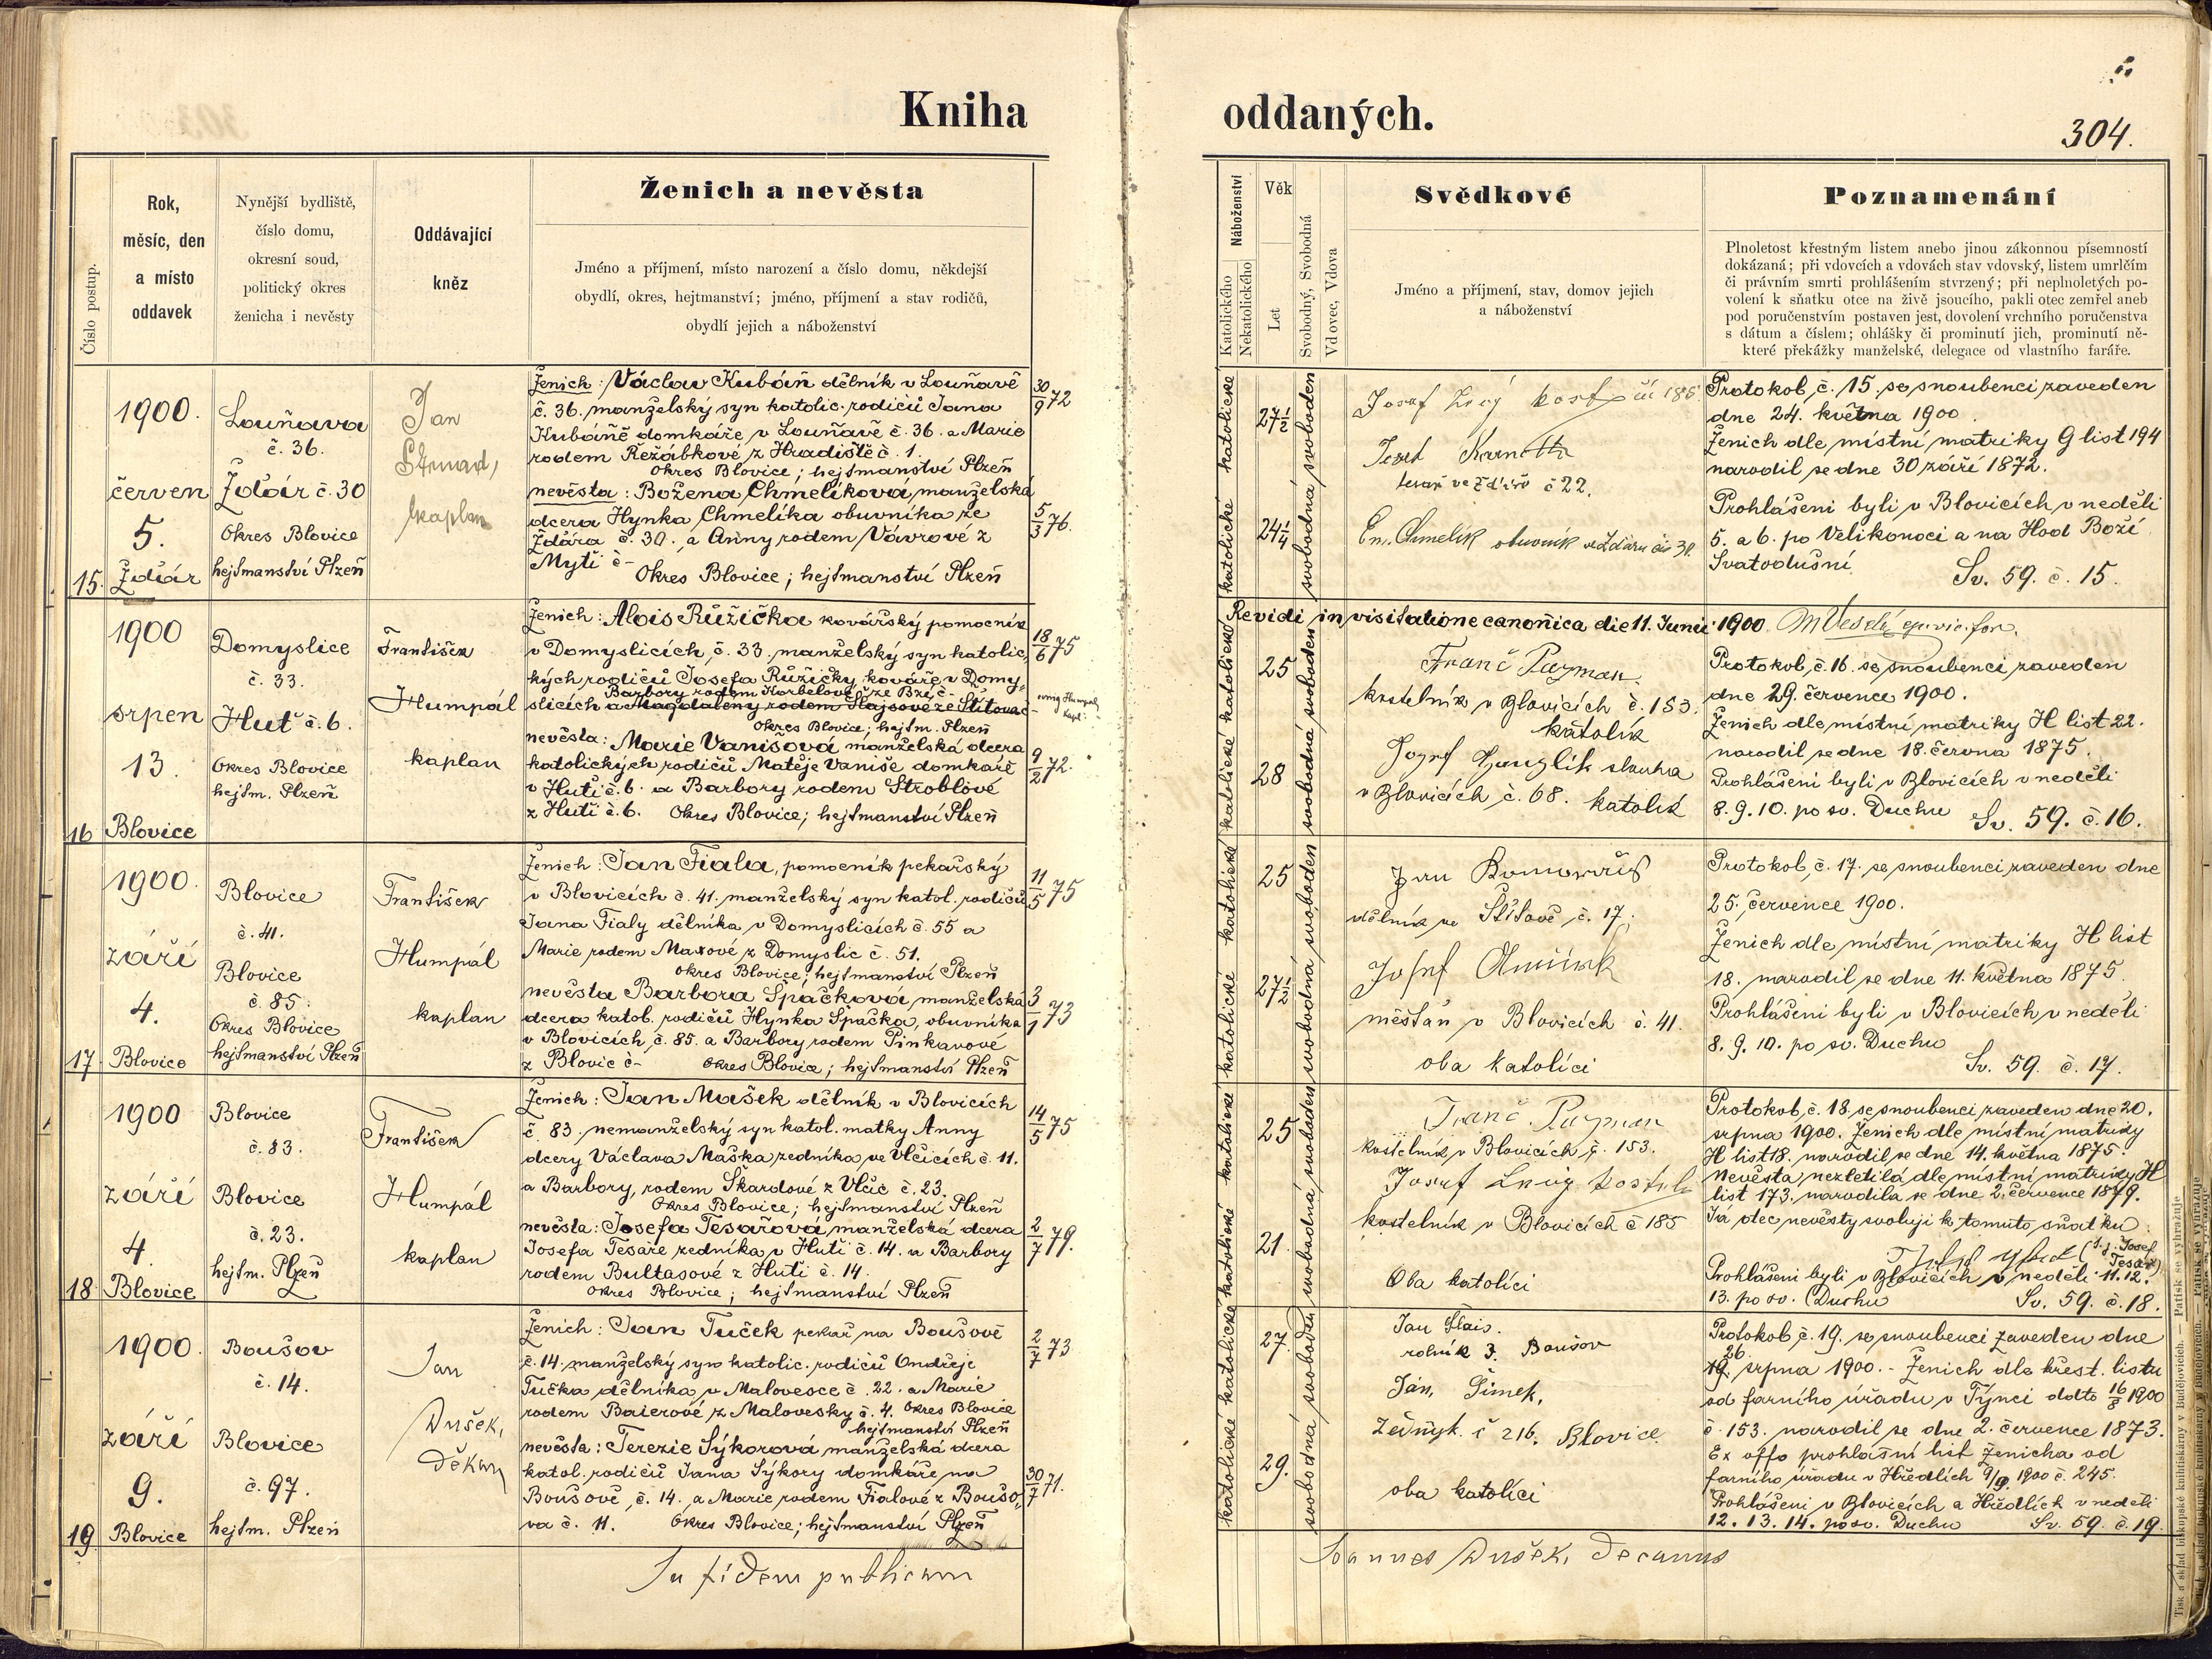 Kniha oddaných.
304.
Číslo postup.
Rok,
měsíc, den
a místo
oddavek
Nynější bydliště,
číslo domu,
okresní soud,
politický okres
ženicha i nevěsty
Oddávající
kněz
Ženich a nevěsta
Jméno a příjmení, místo narození a číslo domu, někdejší
obydlí, okres, hejtmanství; jméno, příjmení a stav rodičů,
obydlí jejich a náboženství
Náboženství
Katolického
Nekatolického
Věk
Let
Svobodný, Svobodná
Vdovec, Vdova
Svědkové
Jméno a příjmení, stav, domov jejich
a náboženství
Poznamenání
Plnoletost křestným listem anebo jinou zákonnou písemností
dokázaná; při vdovcích a vdovách stav vdovský, listem umrlčím
či právním smrti prohlášením stvrzený; při neplnoletých po-
volení k sňatku otce na živě jsoucího, pakli otec zemřel aneb
pod poručenstvím postaven jest, dovolení vrchního poručenstva
s dátum a číslem; ohlášky či prominutí jich, prominutí ně-
které překážky manželské, delegace od vlastního faráře.
15.
1900.
červen
5.
Ždár
Louňava
č. 36.
Ždár č. 30
Okres Blovice
hejtmanství Plzeň
Jan
kaplan
Ženich: Václav Kubáň dělník v Louňavě
č. 36. manželský syn katolic. rodičů Jana
Kubáně domkáře v Louňavě č. 36. a Marie
rodem Řežábkové z Hradiště č. 1.
Okres Blovice; hejtmanství Plzeň
nevěsta: Božena Chmelíková, manželská
dcera Hynka Chmelíka obuvníka ze
Ždára č. 30., a Anny rodem Vávrové z
Mýti č -
Okres Blovice; hejtmanství Plzeň
30/9 72
5/3 76.
katolické katolické
27 1/2
24 1/4
svobodná svoboden
Josef
Josef
tesař ve Ždáře č 22.
Chmelík obuvník ve Ždáru čís 30.
Protokol č. 15. se snoubenci zaveden
dne 24. května 1900.
Ženich dle místní matriky G list 194
narodil se dne 30 září 1872.
Prohlášeni byli v Blovicích v neděli
5. a 6. po Velikonoci a na Hod Boží
Svatodušní.
Sv. 59. č. 15.
Revidi in visitatione canonica die 11. Junii 1900.
16
1900
srpen
13.
Blovice
Domyslice
č. 33.
Huť č. 6.
Okres Blovice
hejtm. Plzeň
František
Humpál
kaplan
Ženich: Alois Růžička kovářský pomocník
v Domyslicích, č. 33. manželský syn katolic-
kých rodičů Josefa Růžičky, kováře v Domy-
Barbory rodem Korbelové ze Bzí č -
slicích a Magdaleny rodem Šlajsové ze Štítova č -
Okres Blovice; hejtm. Plzeň
nevěsta: Marie Vanišová manželská dcera
katolických rodičů Matěje Vaniše domkáře
v Huti č. 6. a Barbory rodem Stroblové
z Huti č. 6. Okres Blovice; hejtmanství Plzeň
18/6 75
9/2 72.
katolické katolické
25
28
svobodná svoboden
Franč Pazman
kostelník v Blovicích č. 153.
katolík
Josef sluha
v Blovicích č. 68. katolík
Protokol č. 16. se snoubenci zaveden
dne 29. července 1900.
Ženich dle místní matriky H list 22.
narodil se dne 18. června 1875.
Prohlášeni byli v Blovicích v neděli
8. 9. 10. po sv. Duchu
Sv. 59. č. 16.
17
1900.
září
4.
Blovice
Blovice
č. 41.
Blovice
č. 85.
Okres Blovice
hejtmanství Plzeň
František
Humpál
kaplan
Ženich: Jan Fiala, pomocník pekařský
v Blovicích č. 41. manželský syn katol. rodičů
Jana Fialy dělníka v Domyslicích č. 55 a
Marie rodem Maxové z Domyslic č. 51.
Okres Blovice; hejtmanství Plzeň
nevěsta Barbora Špačková manželská
dcera katol. rodičů Hynka Špačka, obuvníka
v Blovicích, č. 85. a Barbory rodem Pinkavové
z Blovic č -
Okres Blovice; hejtmanství Plzeň
11/5 75
3/1 73
katolické katolické
25
27 1/2
svobodná svoboden
Jan
dělník ve Štítově, č. 17;
Josef
měšťan v Blovicích č. 41.
oba katolíci
Protokol č. 17. se snoubenci zaveden dne
25. července 1900.
Ženich dle místní matriky H list
18. narodil se dne 11. května 1875.
Prohlášeni byli v Blovicích v neděli
8. 9. 10. po sv. Duchu
Sv. 59. č. 17.
18
1900
září
4.
Blovice
Blovice
č. 83.
Blovice
č. 23.
hejtm. Plzeň
František
Humpál
kaplan
Ženich: Jan Mašek dělník v Blovicích
č. 83. nemanželský syn katol. matky Anny
dcery Václava Maška zedníka ve Vlčicích č. 11.
a Barbory, rodem Škardové z Vlčic č. 23.
Okres Blovice; hejtmanství Plzeň
nevěsta: Josefa Tesařová, manželská dcera
Josefa Tesaře zedníka v Huti č. 14. a Barbory
rodem Bultasové z Huti č. 14.
Okres Blovice; hejtmanství Plzeň
14/5 75
2/7 79.
katolické katolické
25
21.
svobodná svoboden
Franč Pazman
kostelník v Blovicích, č. 153.
Josef
kostelník v Blovicích č 185
Oba katolíci
Protokol č. 18. se snoubenci zaveden dne 20.
srpna 1900. Ženich dle místní matriky
H list 18. narodil se dne 14. května 1875.
Nevěsta nezletilá dle místní matriky H
list 173. narodila se dne 2. července 1879.
Já otec nevěsty svoluji k tomuto sňatku.
(t. j. Josef
Tesař)
Prohlášeni byli v Blovicích v neděli 11. 12.
13. po sv. Duchu
Sv. 59. č. 18.
19
1900.
září
9.
Blovice
Boušov
č. 14.
Blovice
č. 97.
hejtm. Plzeň
Jan
Dušek,
Děkan
Ženich: Jan Tuček pekař na Boušově
č. 14. manželský syn katolic. rodičů Ondřeje
Tučka dělníka v Malovesce č. 22. a Marie
rodem Baierové z Malovesky č. 4. Okres Blovice
hejtmanství Plzeň
nevěsta: Terezie Sýkorová manželská dcera
katol. rodičů Jana Sýkory domkáře na
Boušově, č. 14. a Marie rodem Fialové z Boušo-
va č. 11. Okres Blovice; hejtmanství Plzeň
2/7 73
30/7 71.
katolické katolické
27.
29.
svobodná svoboden
Jan
rolník 3. Boušov
Jan, Šimek,
č 216. Blovice
oba katolíci
Protokol č. 19. se snoubenci zaveden dne
26
19. srpna 1900. - Ženich dle křest. listu
od farního úřadu v Týnci ddto 16/8 1900
č. 153. narodil se dne 2. července 1873.
Ex offo prohlášní list ženicha od
farního úřadu v Hředlích 9/9 1900 č. 245.
Prohlášeni v Blovicích a Hředlích v neděli
12. 13. 14. po sv. Duchu
Sv. 59. č. 19.
In fidem publicam
Joannes Dušek, decanus
Tisk a sklad biskupské knihtiskárny v Budějovicích. — Patisk se vyhražuje